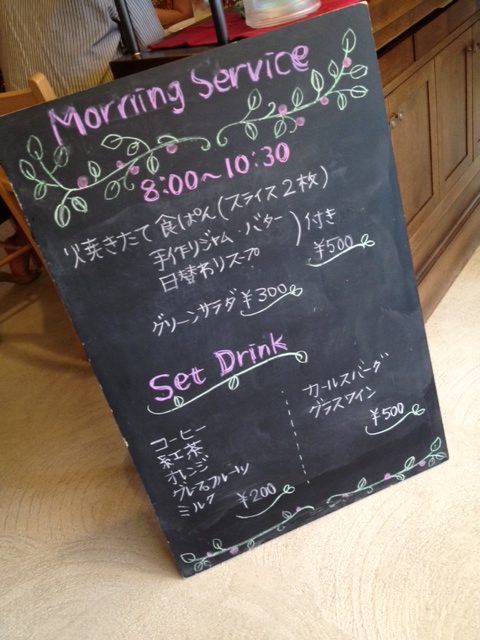 Morning Service
8:00～10:30
焼きたて 食ぱん(スライス2枚)
手作りジャム・バター
日替わりスープ
)付き
¥500
グリーンサラダ ¥300
Set Drink
コーヒー
紅茶
オレンジ
グレープフルーツ
ミルク
¥200
カールスバーグ
グラスワイン
¥500